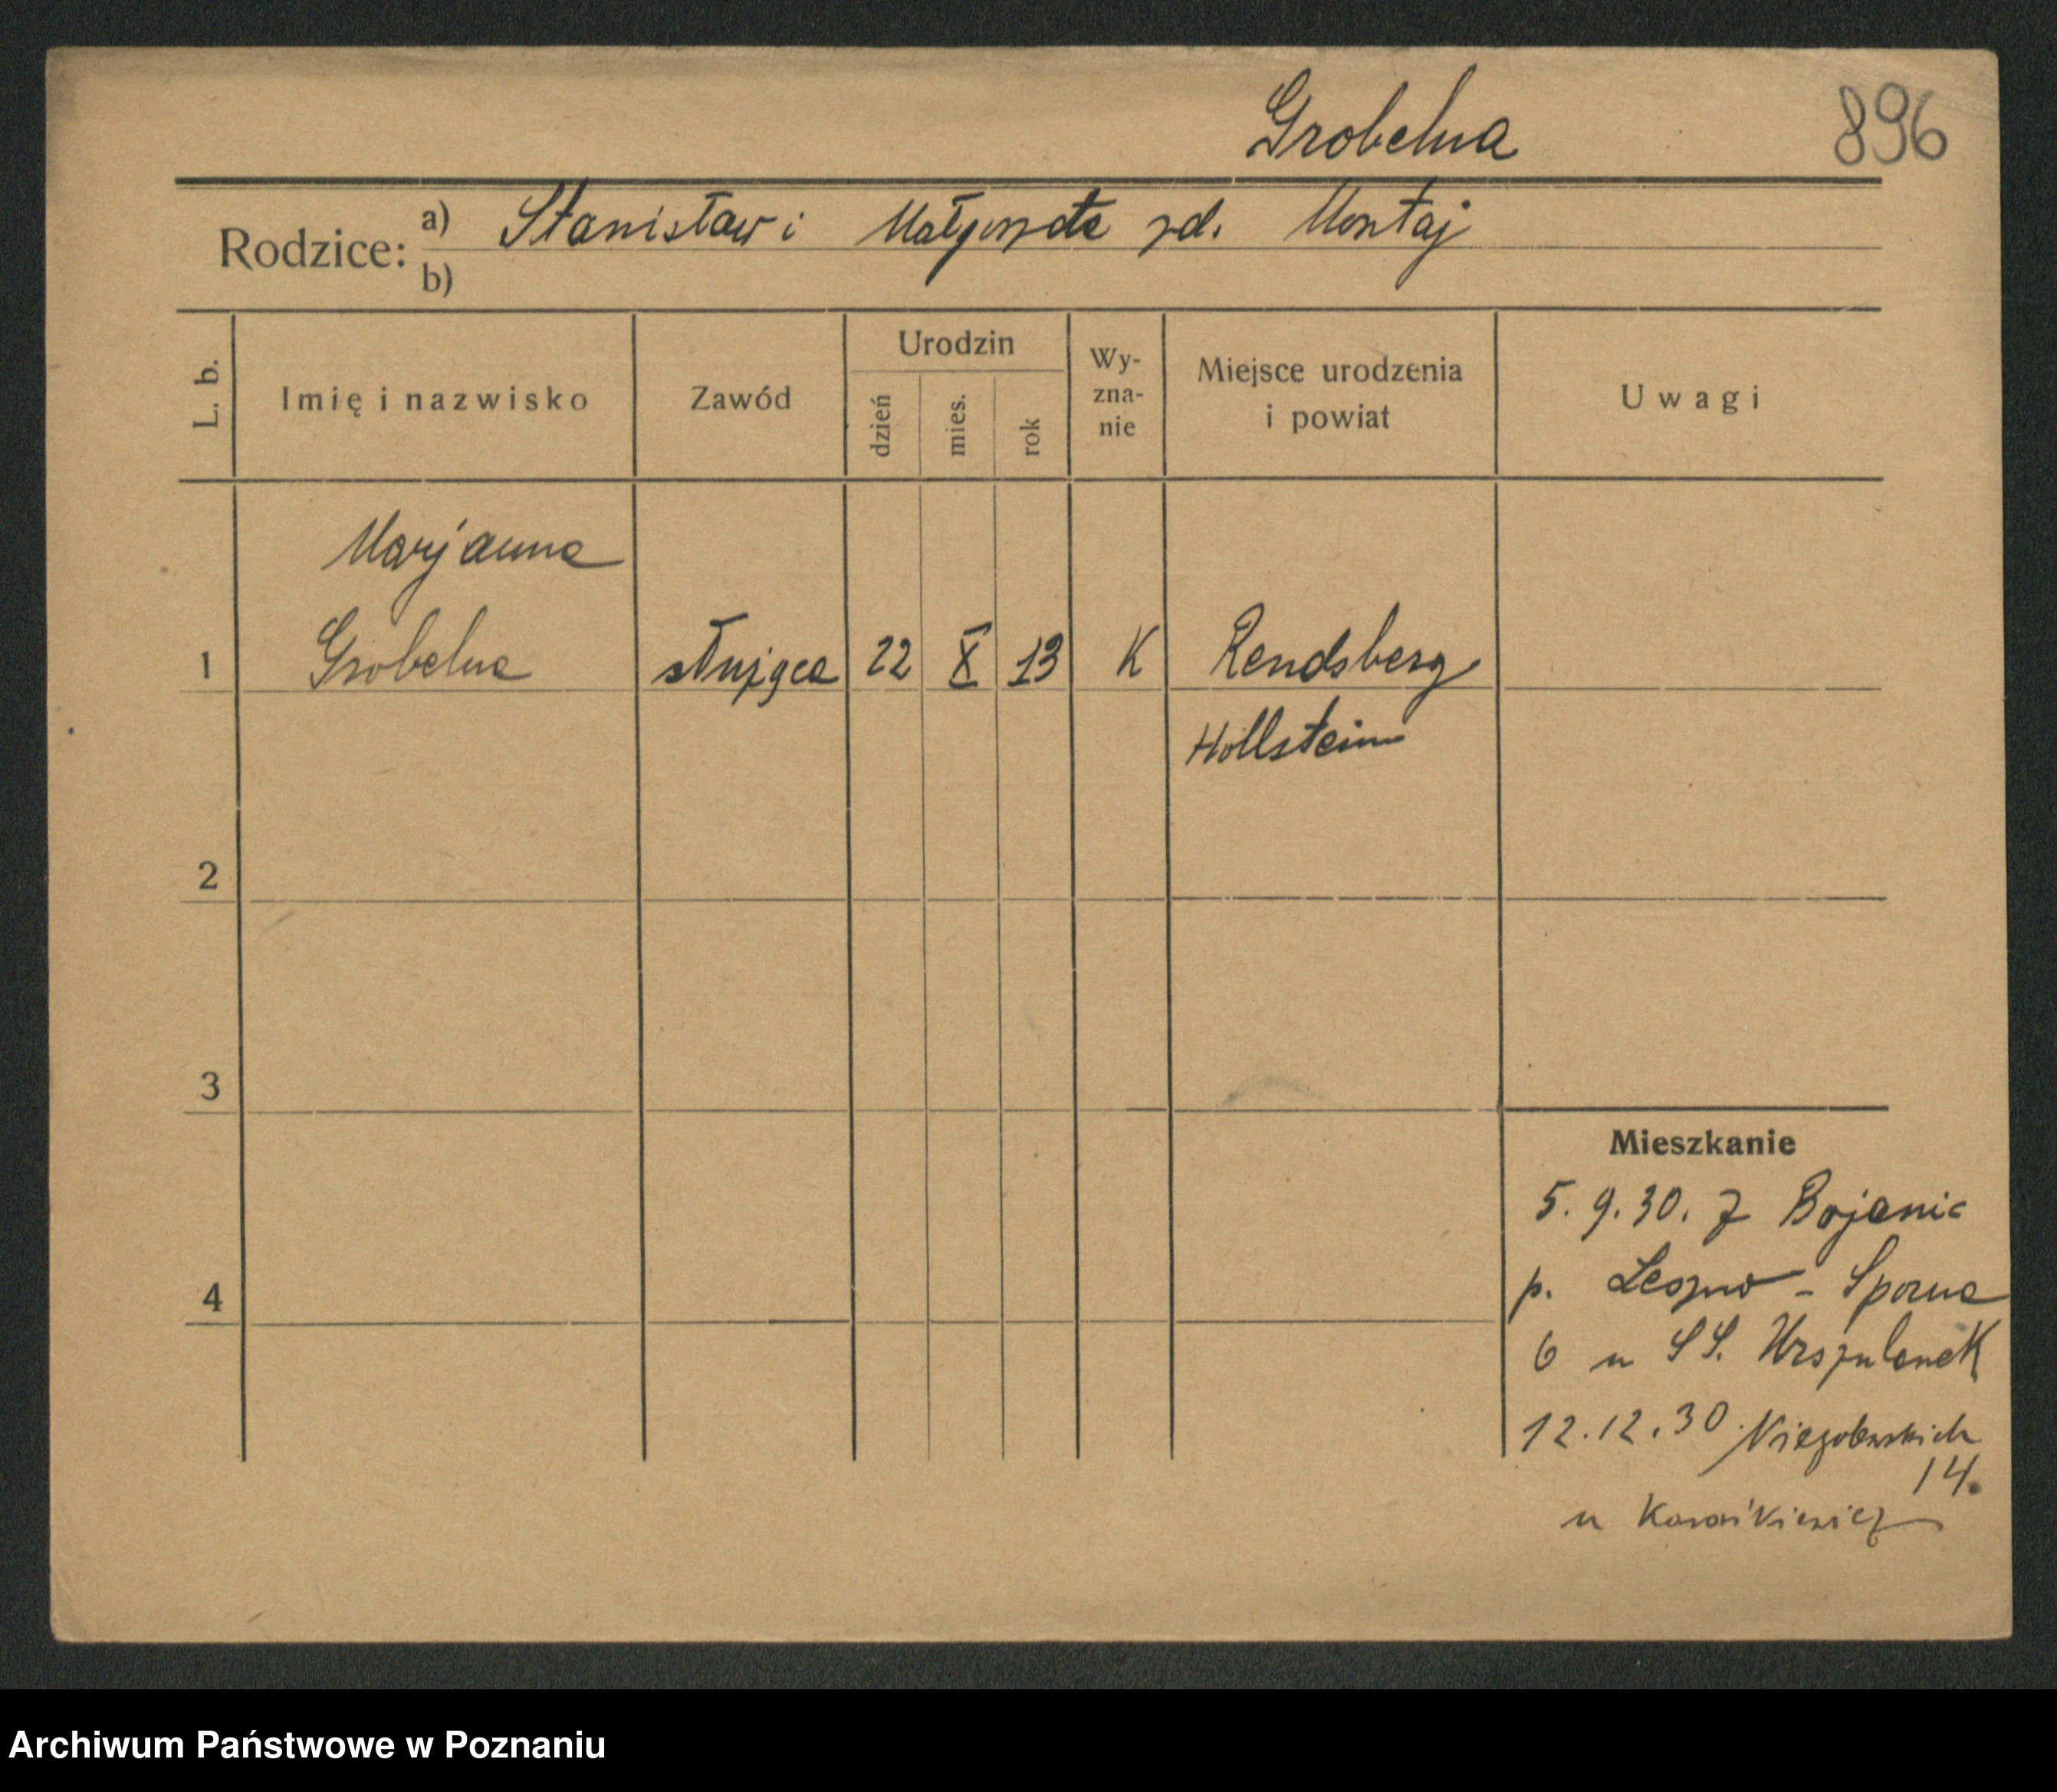 Grobelna
896
Rodzice: a) Stanisław i Małgorzata zd. Montaj
b)
L. b.
Imię i nazwisko
Zawód
Urodzin
dzień
mies.
rok
Wy-
zna-
nie
Miejsce urodzenia
i powiat
Uwagi
Marjanna
1 Grobelna służąca 22 X 13 K Rendsberg
Hollstein
2
3
4
Mieszkanie
5. 9. 30. z Bojanic
p. Leszno - Sporna
6 u SS. Urszulanek
12.12.30. Niegolewskich
14.
u
Archiwum Państwowe w Poznaniu